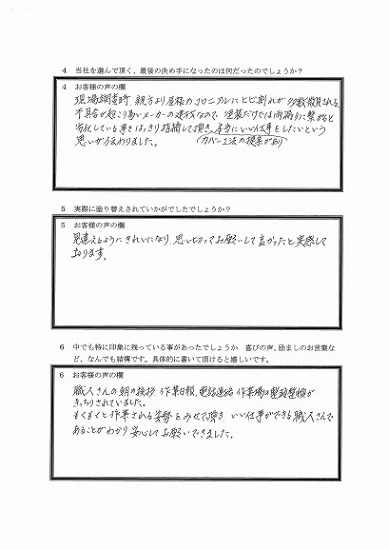 4 当社を選んで頂く、最後の決め手になったのは何だったのでしょうか?
4 お客様の声の欄
現場調査時、親方より屋根のコロニアルにヒビ割れが多数散見される、
不具合が起こり易いメーカーの建材なので、塗装だけでは雨漏りに繋ると
劣化している事をはっきり指摘して頂き、本当にいい仕事をしたいという
思いが伝わりました。(カバー工法の提案があり)
5 実際に塗り替えされていかがでしたでしょうか?
5 お客様の声の欄
見違えるようにきれいになり、思い切ってお願いして良かったと実感して
おります。
6 中でも特に印象に残っている事があったでしょうか 喜びの声、励ましのお言葉な
ど、なんでも結構です。具体的に書いて頂けると嬉しいです。
6 お客様の声の欄
職人さんの朝の挨拶、作業日報、電話連絡、作業場の整理整頓が
きっちりされていました。
もくもくと作業される姿勢をみせて頂き、いい仕事ができる職人さんで
あることがわかり安心してお願いできました。